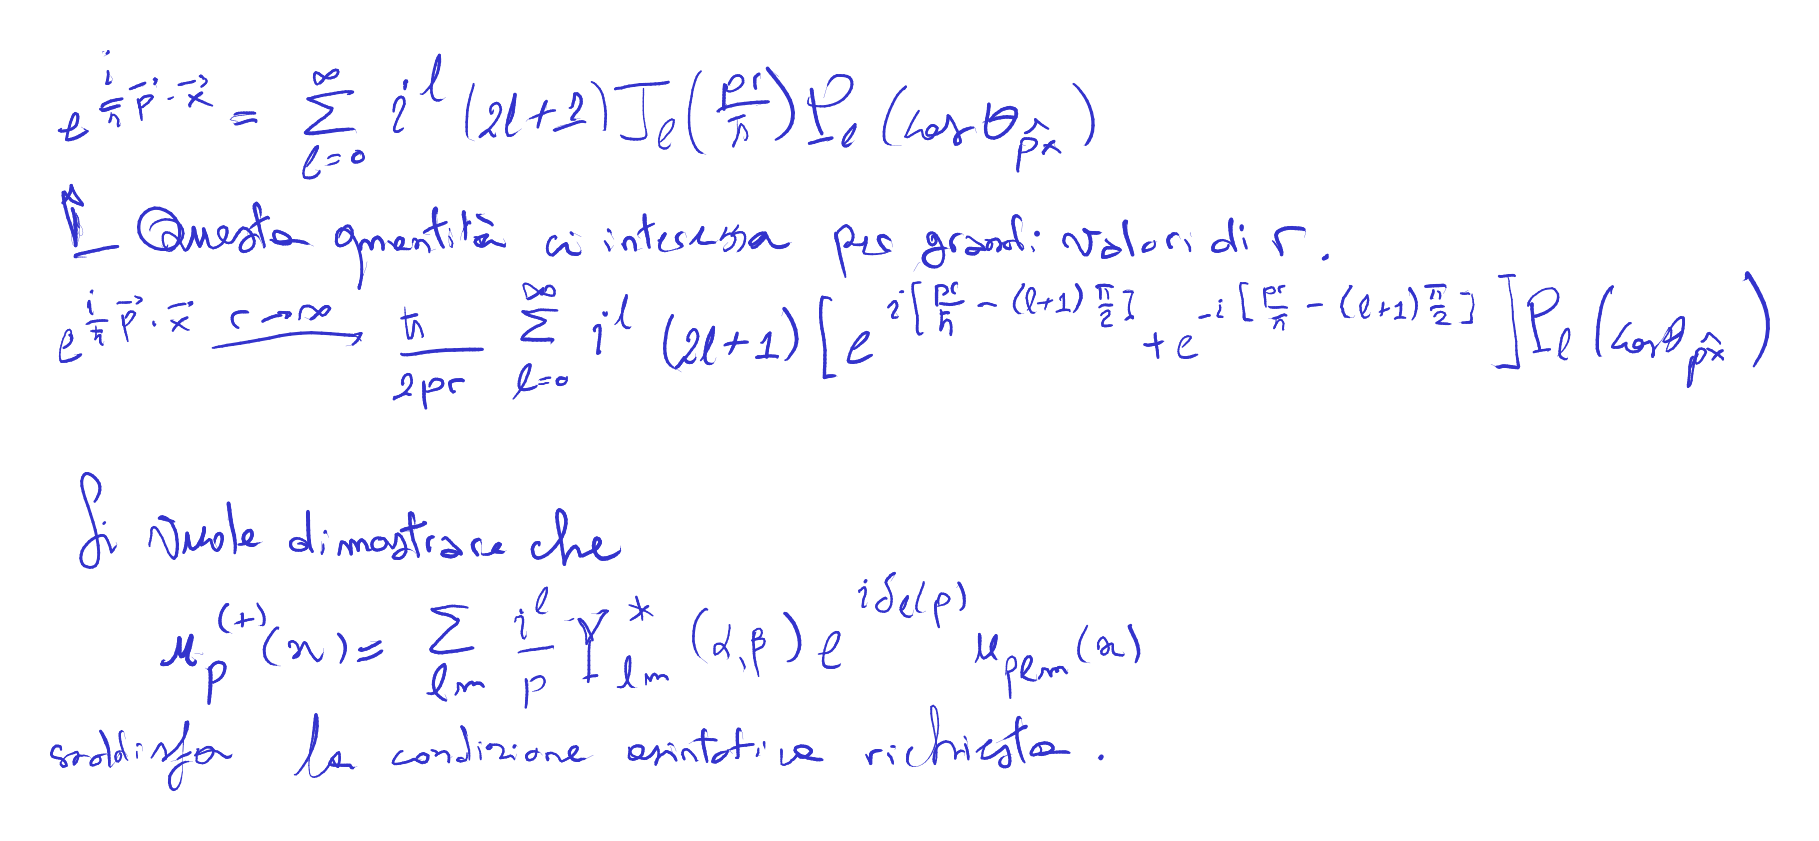 e^{\frac{i}{ħ} \vec{p}·\vec{x}} = \sum_{l=0}^{∞} i^l (2l+1) J_l(\frac{pr}{ħ}) P_l (cos θ_{\hat{px}})
Questa quantità ci interessa per grandi valori di r.
e^{\frac{i}{ħ} \vec{p}·\vec{x}} \xrightarrow{r→∞} \frac{ħ}{2pr} \sum_{l=0}^{∞} i^l (2l+1) [e^{i[\frac{pr}{ħ} - (l+1)\frac{π}{2}]} + e^{-i[\frac{pr}{ħ} - (l+1)\frac{π}{2}]}] P_l (cos θ_{\hat{px}})
Si vuole dimostrare che
u_p^{(+)}(x) = \sum_{lm} \frac{i^l}{p} Y^*_{lm} (α,β) e^{iδ_l(p)} u_{plm}(x)
soddisfa la condizione asintotica richiesta.